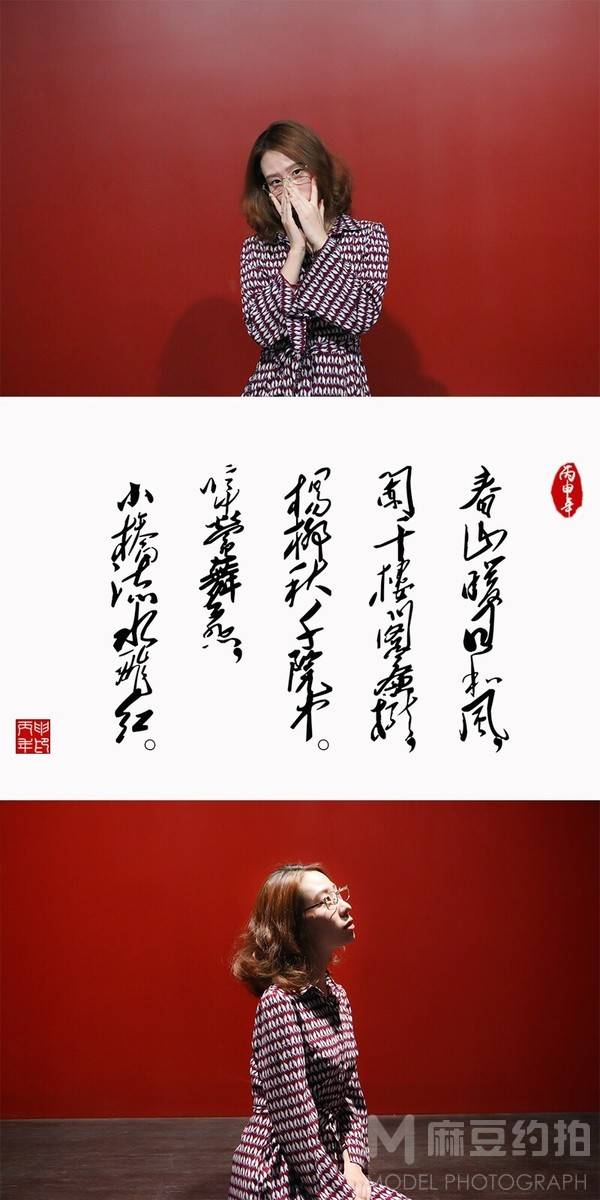 丙申年
春山暖日和风，
阑干樓阁簾櫳，
楊柳秋千院中。
啼莺舞燕，
小橋流水飛红。
丙年申印
M 麻豆约拍
MODEL PHOTOGRAPH